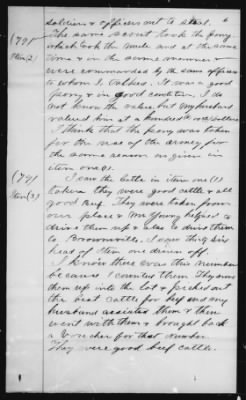 6
soldiers & officers out to steal.
(79)
Item (2)
The same scout took the pony
which took the mule and at the same
time & in the same manner &
were commanded by the same officers
to whom I talked. It was a good
pony & in good condition. I do
not know the value but my husband
valued him at a hundred dollars
I think that the pony was taken
for the use of the army for
the same reason as given in
item one (1).
(79)
Item (3)
I saw the cattle in item one (1)
taken they were good cattle & all
good beef. They were taken from
our place & Mr Young helped to
drive them up & also to drive them
to Brownsville. I saw thirty six
head of them driven off.
I know there was this number
because I counted them They drove
them up into the lot & picked out
the best cattle for beef and my
husband assisted them & then
went with them & brought back
a voucher for that number
They were good beef cattle.